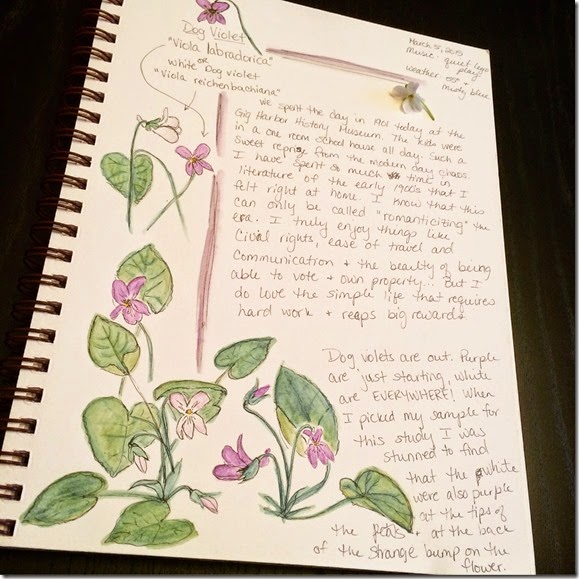 Dog Violet
"Viola labradorica"
or
white Dog violet
"Viola reichenbachiana"
March 5, 20
Music: quiet lego
play
weather: 55° +
mistly blue
we spent the day in 1901 today at the
Gig Harbor History Museum. The kids were
in a one room school house all day. Such a
sweet repris from the modern day chaos.
I have spent so much time in
literature of the early 1900s that I
felt right at home. I know that this
can only be called "romanticizing" the
era. I truly enjoy things like
Civial rights, ease of travel and
communication + the beauty of being
able to vote + own property... But I
do love the simple life that requires
hard work + reaps big rewards.
Dog volets are out. Purple
are just starting, white
are EVERYWHERE! When
I picked my sample for
this study I was
stunned to find
that the white
were also purple
at the tips of
the petals + at the back
of the strange bump on the
flower.